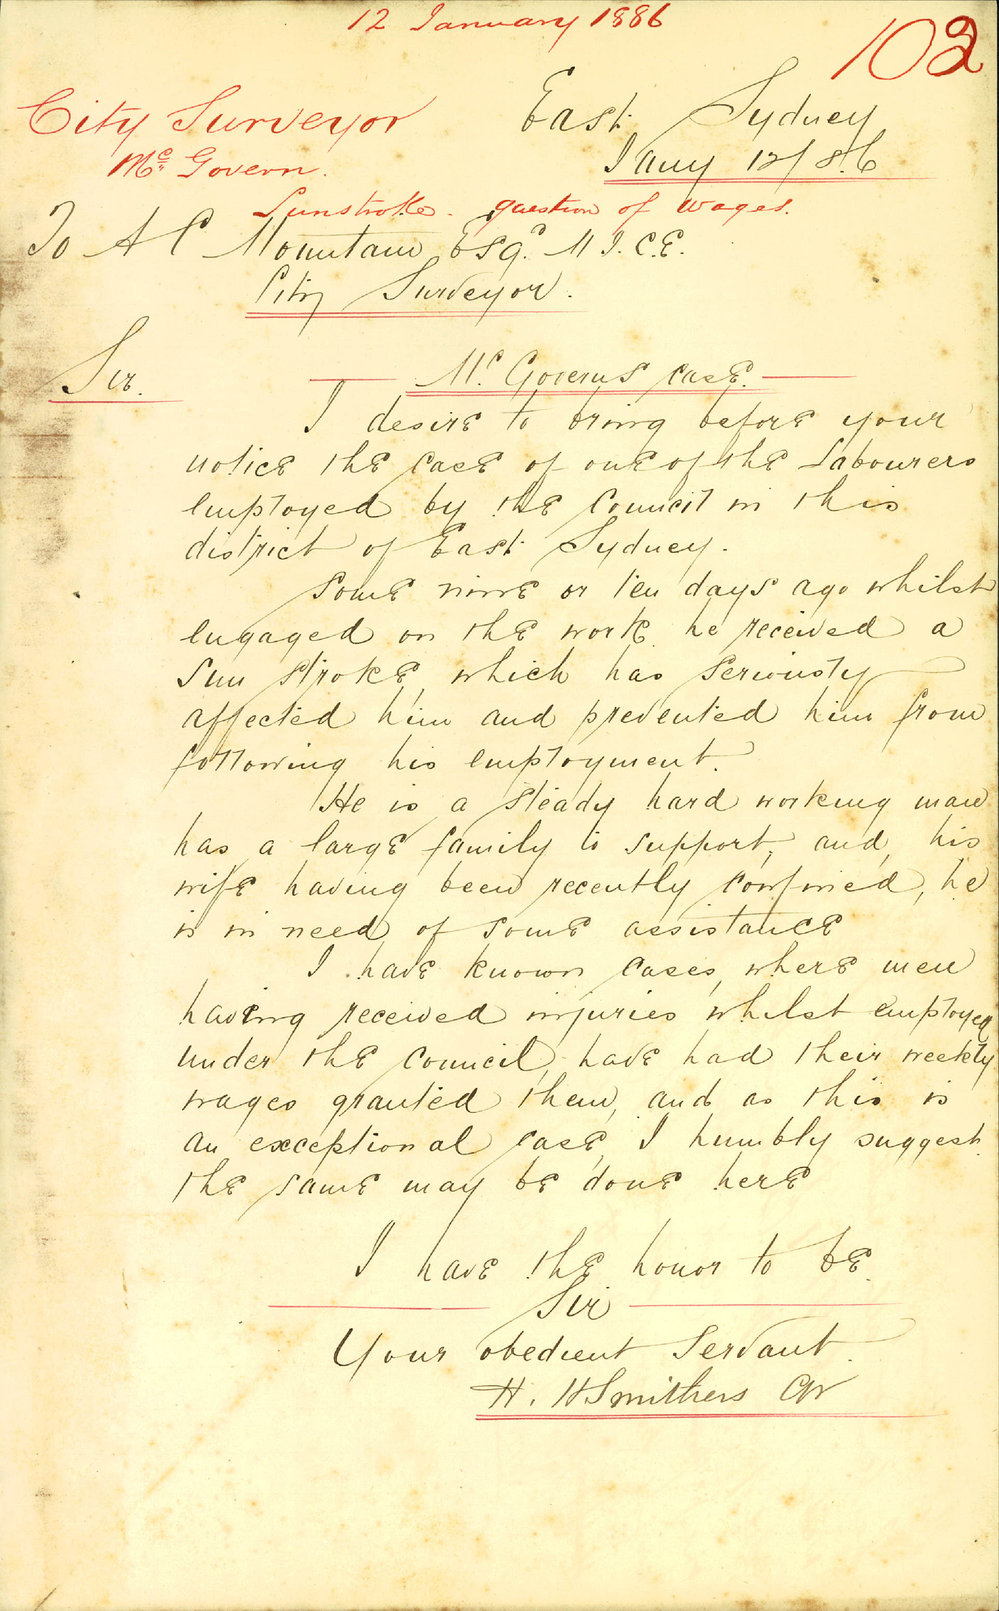 12 January 1886
102
City Surveyor
East Sydney
Mc Govern.
Jany 12/86
Sunstroke. question of wages.
To A C Mountain Esqr. M I. C.E.
City Surveyor.
Sir.
Mc Governs case.
I desire to bring before your
notice the case of one of the Labourers
employed by the Council in this
district of East Sydney.
Some nine or ten days ago whilst
engaged on the work he received a
Sun stroke, which has seriously
affected him and prevented him from
following his employment.
He is a steady hard working man
has a large family to support, and, his
wife having been recently confined, he
is in need of some assistance
I have known cases, where men
having received injuries whilst employed
under the Council, have had their weekly
wages granted them, and as this is
an exceptional case, I humbly suggest
the same may be done here
I have the honor to be
Sir
Your obedient Servant.
H. H Smithers